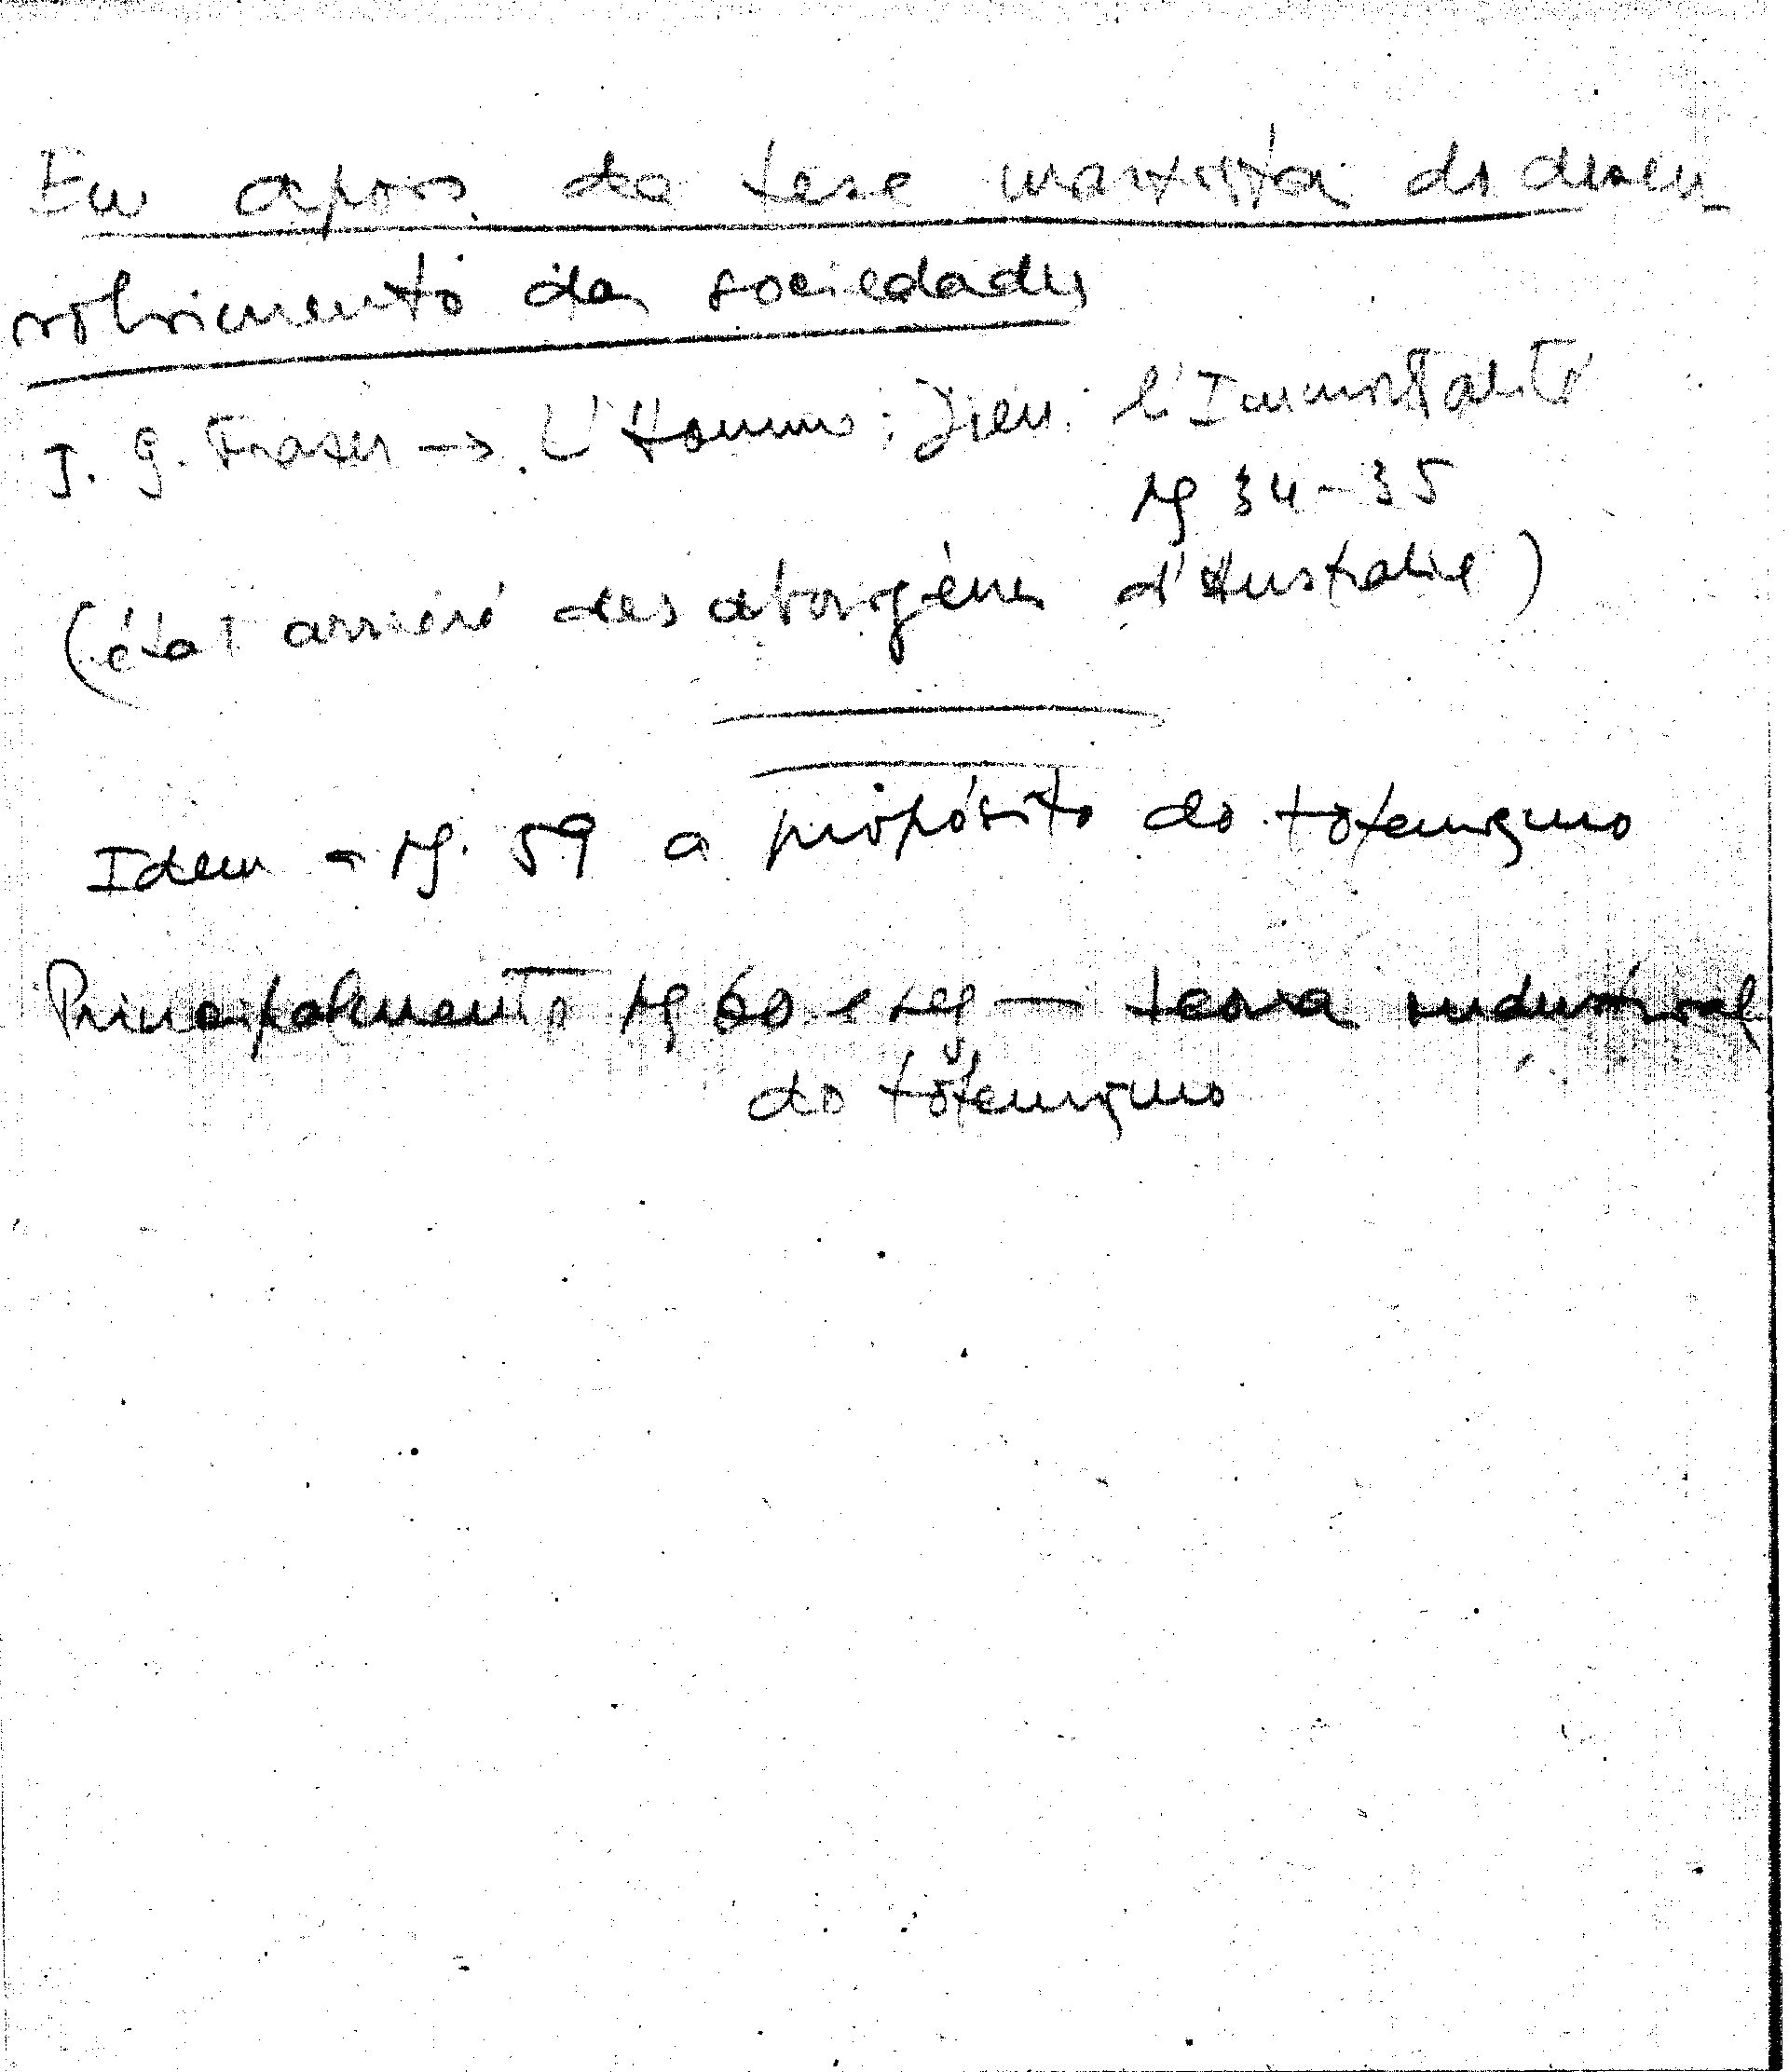 Em apoio da tese marxista do desen-
volvimento das sociedades
J. G. Frazer → L'Homme; Dieu; l'Immortalité
pg 34-35
(état arriéré des aborigènes d'Australie)
Idem - pg. 59 a propósito do totemismo
Principalmente pg 60 e seg — teoria industrial
do totemismo